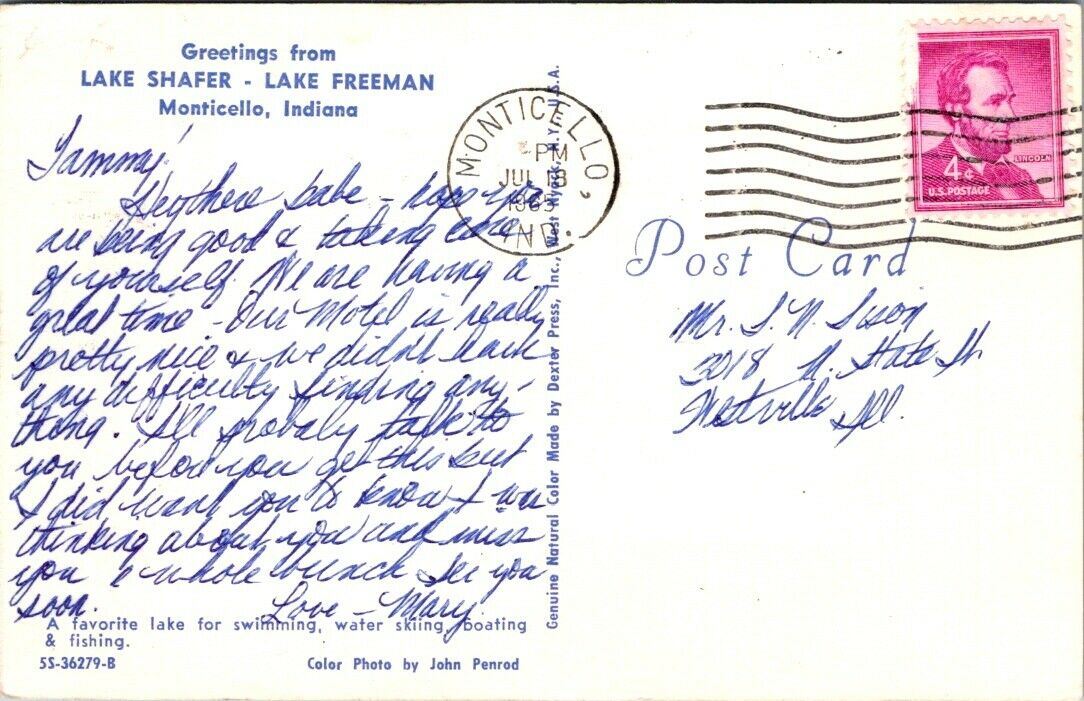 Greetings from
LAKE SHAFER - LAKE FREEMAN
Monticello, Indiana
Tammy,
Hey there babe - hope you
are being good & taking care
of yourself. We are having a
great time - Our Motel is really
pretty nice & we didnt have
any difficulty finding any-
thing. I'll probaly talk to
you before you get this but
I did want you to know I was
thinking about you and miss
you a whole bunch See you
soon.
Love - Mary
A favorite lake for swimming, water skiing, boating
& fishing.
5S-36279-B
Color Photo by John Penrod
Genuine Natural Color Made by Dexter Press, Inc., West Nyack, N.Y., U.S.A.
MONTICELLO,
PM
JUL 13
1965
IND.
4¢
LINCOLN
U.S. POSTAGE
Post Card
Mr. S. N. Sison
3018 N. State St
Westville Ill.